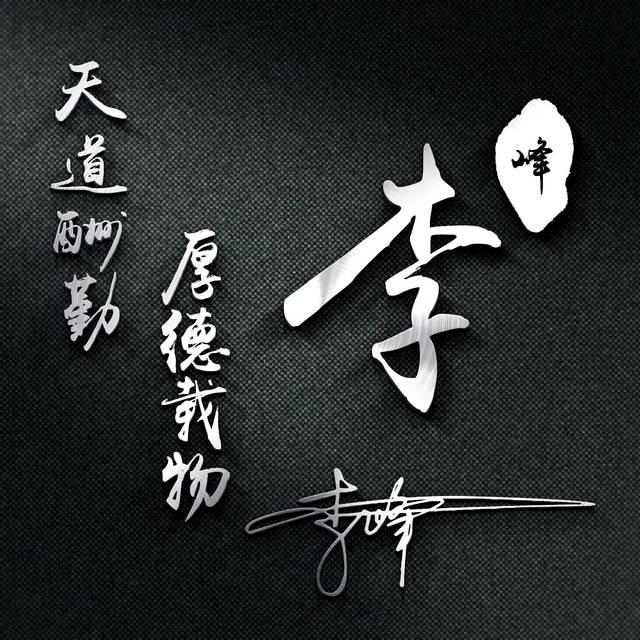 天道酬勤
厚德载物
李
峰
李峰